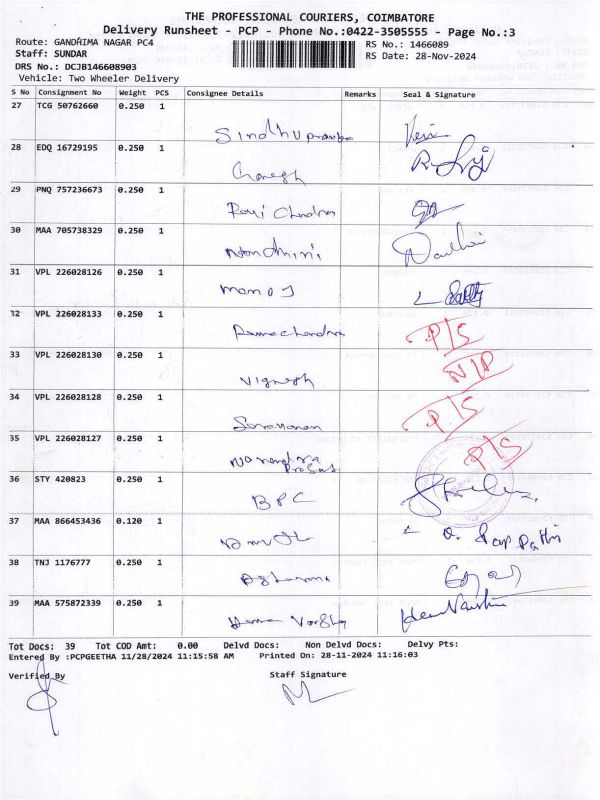 THE PROFESSIONAL COURIERS, COIMBATORE
Delivery Runsheet - PCP - Phone No.:0422-3505555 - Page No.:3
Route: GANDHIMA NAGAR PC4 RS No.: 1466089
Staff: SUNDAR RS Date: 28-Nov-2024
DRS No.: DCJB146608903
Vehicle: Two Wheeler Delivery
S No Consignment No Weight PCS Consignee Details Remarks Seal & Signature
27 TCG 50762660 0.250 1
28 EDQ 16729195 0.250 1
Ganesh
29 PNQ 757236673 0.250 1
Ravi Chandran
30 MAA 705738329 0.250 1
Nandhini
31 VPL 226028126 0.250 1
Manoj
32 VPL 226028133 0.250 1
Ramachandran P/S
33 VPL 226028130 0.250 1
Vignesh N/P
34 VPL 226028128 0.250 1
Saravanan P/S
35 VPL 226028127 0.250 1
Narendra P/S
Prasad
36 STY 420823 0.250 1
BPC
37 MAA 866453436 0.120 1
38 TNJ 1176777 0.250 1
39 MAA 575872339 0.250 1
Tot Docs: 39 Tot COD Amt: 0.00 Delvd Docs: Non Delvd Docs: Delvy Pts:
Entered By :PCPGEETHA 11/28/2024 11:15:58 AM Printed On: 28-11-2024 11:16:03
Verified By Staff Signature